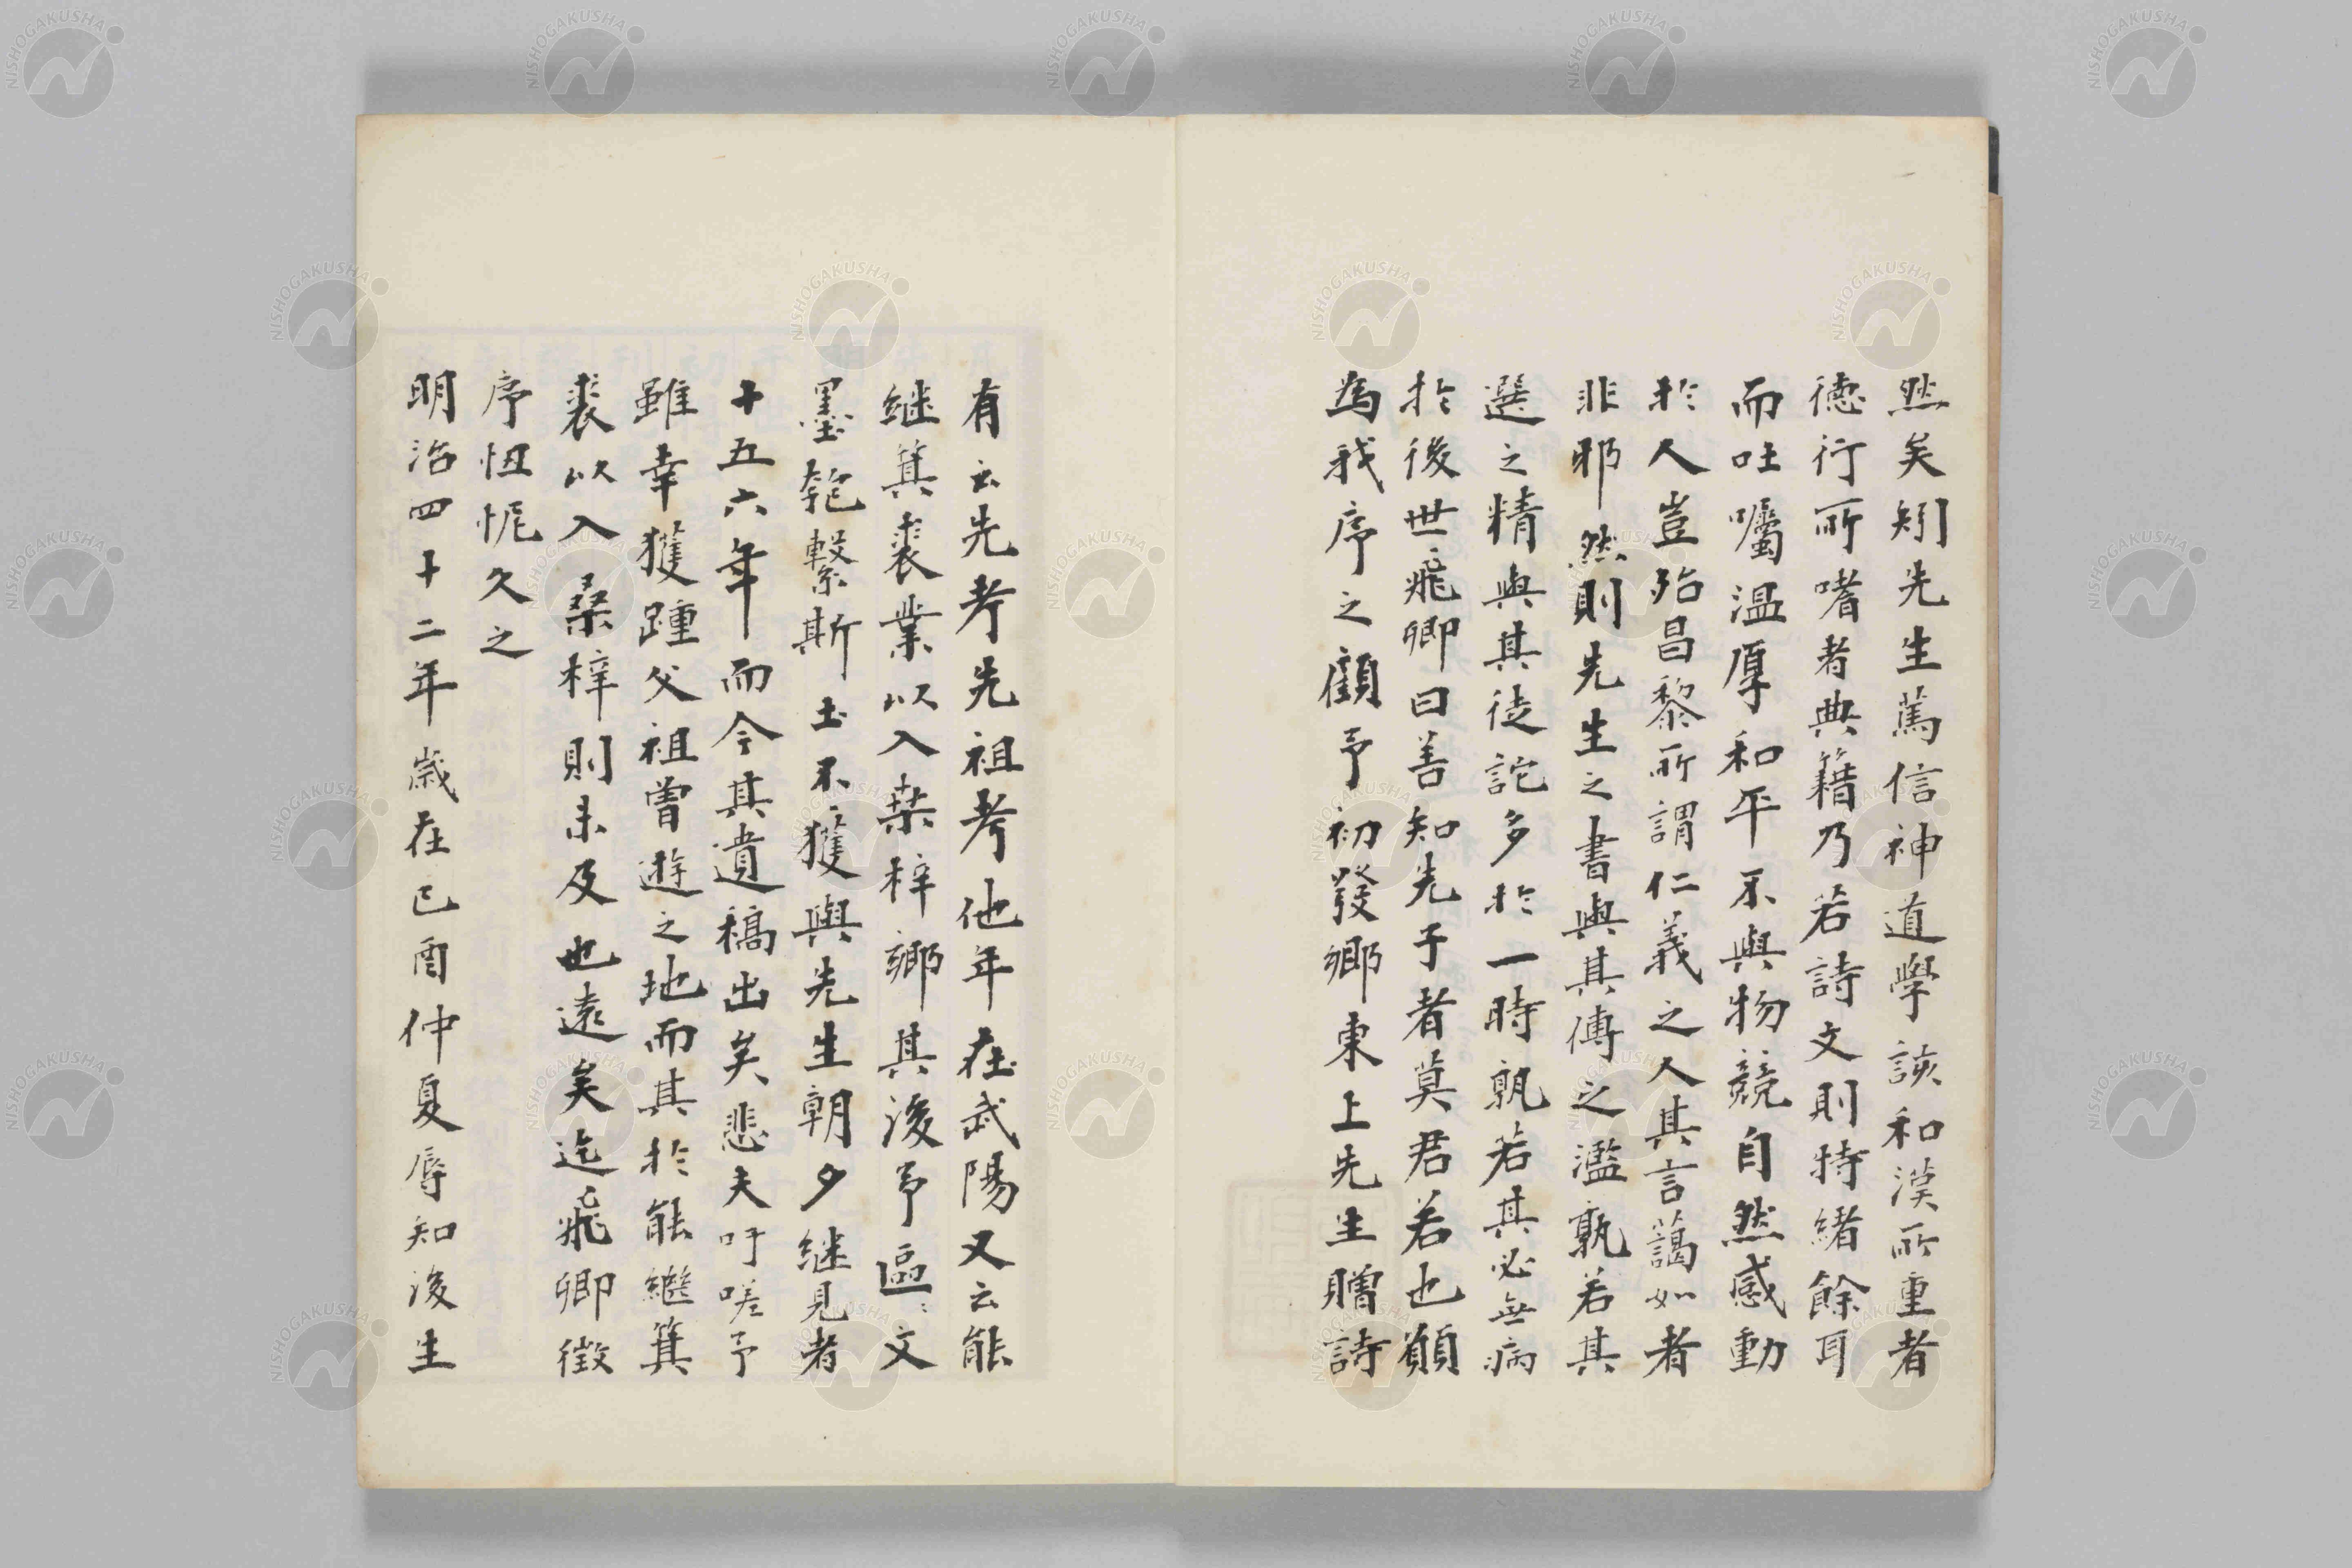 然矣矧先生篤信神道學該和漢所重者
德行所嗜者典籍乃若詩文則特緒餘耳
而吐囑溫厚和平不與物競自然感動
於人豈殆昌黎所謂仁義之人其言藹如者
非耶然則先生之書與其傳之濫孰若其
選之精與其徒詑多於一時孰若其必無病
於後世飛卿曰善知先子者莫君若也願
為我序之顧予初發鄉東上先生贈詩
有云先考先祖考他年在武陽又云能
継箕裘業以入桒梓鄉其後予區〻文
墨匏繫斯土不獲與先生朝夕継見者
十五六年而今其遺稿出矣悲夫吁嗟予
雖幸獲踵父祖曾遊之地而其於能繼箕
裘以入桑梓則未及也遠矣迄飛卿徵
序忸怩久之
明治四十二年歲在己酉仲夏辱知後生
NISHOGAKUSHA